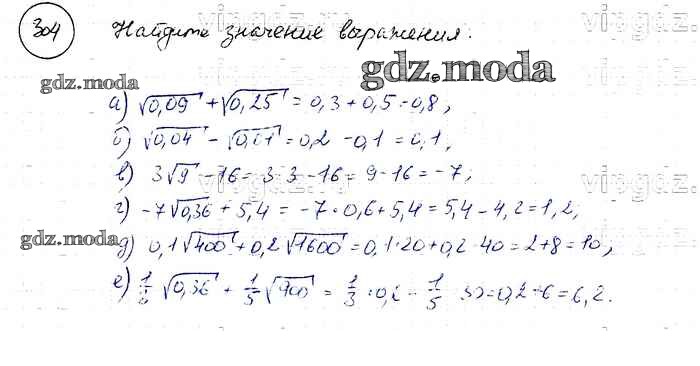 304 Найдите значение выражения.
gdz.moda
gdz.moda
а) √0,09 + √0,25 = 0,3 + 0,5 = 0,8,
б) √0,04 - √0,01 = 0,2 - 0,1 = 0,1,
в) 3√9 - 16 = 3·3 - 16 = 9 - 16 = -7;
г) -7√0,36 + 5,4 = -7·0,6 + 5,4 = 5,4 - 4,2 = 1,2,
gdz.moda
д) 0,1√400 + 0,2√1600 = 0,1·20 + 0,2·40 = 2 + 8 = 10,
е) √0,36 + 1/5 √900 = 1/3 · 0,6 + 1/5 · 30 = 0,2 + 6 = 6,2.